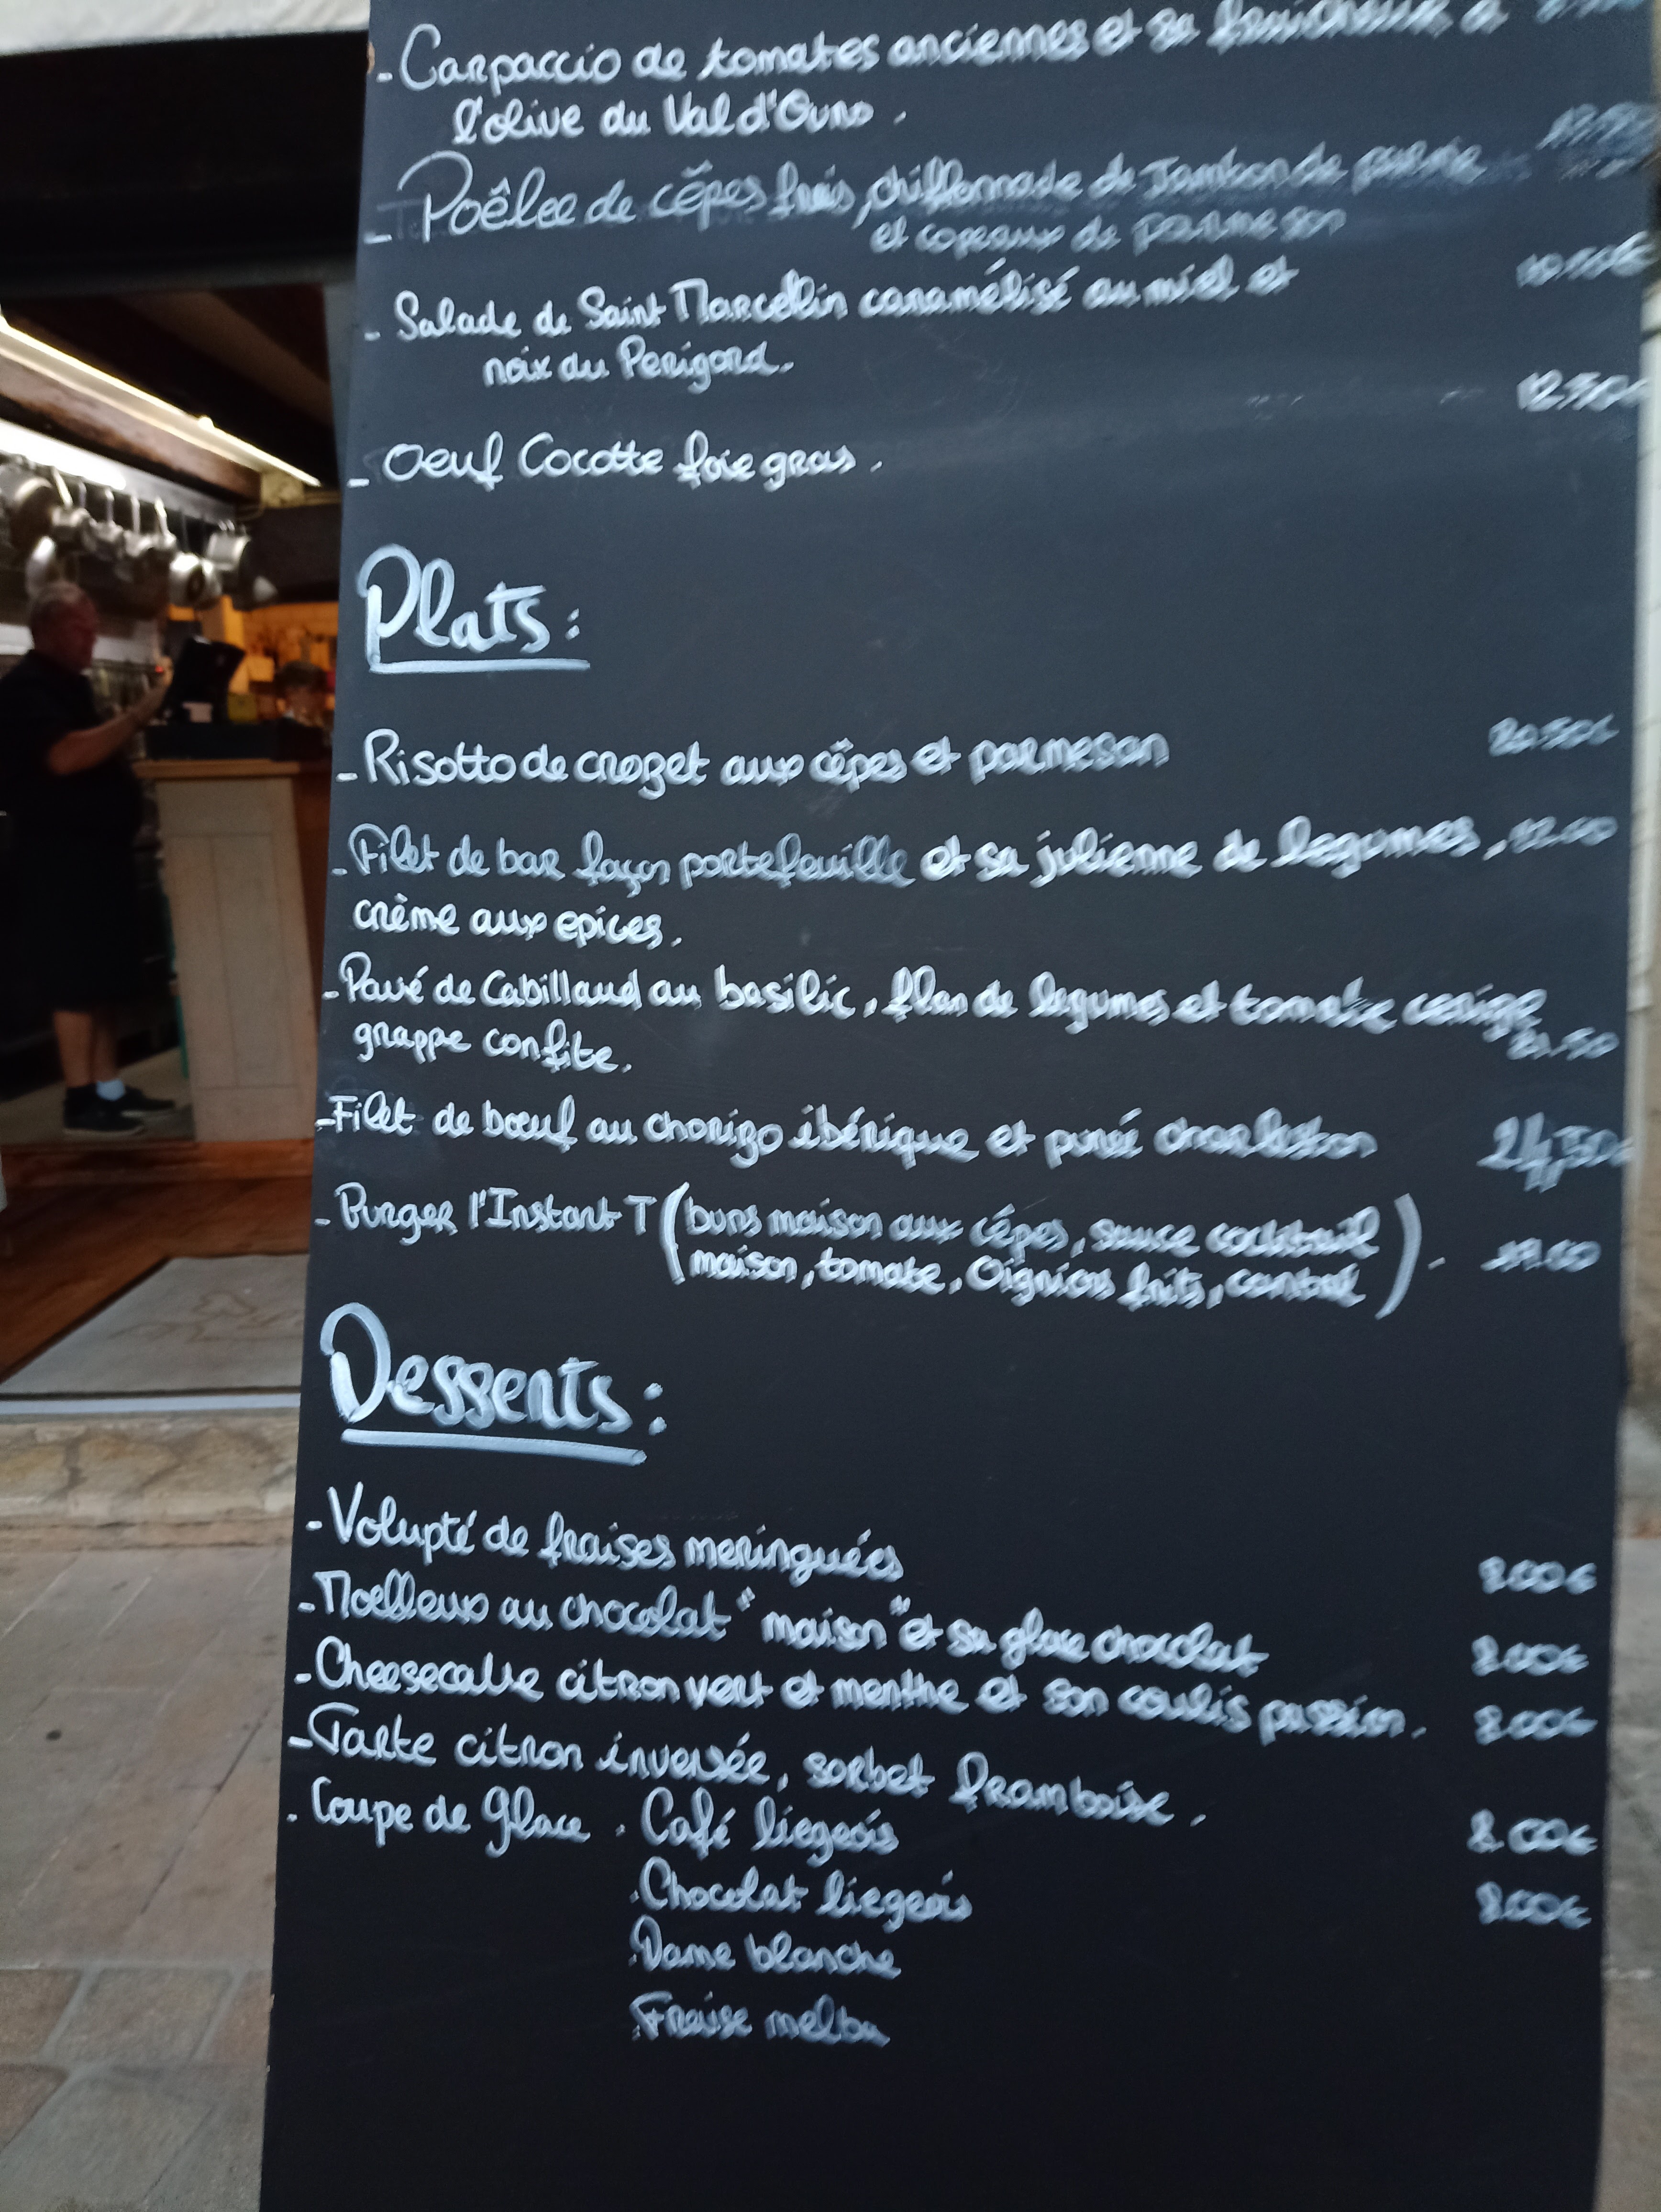 - Carpaccio de tomates anciennes et sa fraicheur à
l'olive du Val d'Ouno.
- Poêlée de cêpes frais, chiffonnade de Jambon de parme
et copeaux de parmesan
- Salade de Saint Marcellin caramélisé au miel et 10.50€
noix du Perigord.
12.50€
- Oeuf Cocotte foie gras.
Plats:
- Risotto de crozet aux cêpes et parmesan 20.50€
- Filet de bar façon portefeuille et sa julienne de legumes, 22.00
crème aux epices.
- Pavé de Cabillaud au basilic, flan de legumes et tomate cerise
grappe confite. 21.50
- Filet de bœuf au chorizo ibérique et purée charleston 24,50€
- Burger l'Instant T (buns maison aux cépes, sauce cocktail
maison, tomate, Oignions frits, cantal). 19.00
Desserts:
- Volupté de fraises meringuées 8.00€
- Moelleux au chocolat "maison" et sa glace chocolat 8.00€
- Cheesecake citron vert et menthe et son coulis passion. 8.00€
- Tarte citron inversée, sorbet framboise. 8.00€
. Coupe de glace . Café liegeois
. Chocolat liegeois 8.00€
. Dame blanche
. Fraise melba